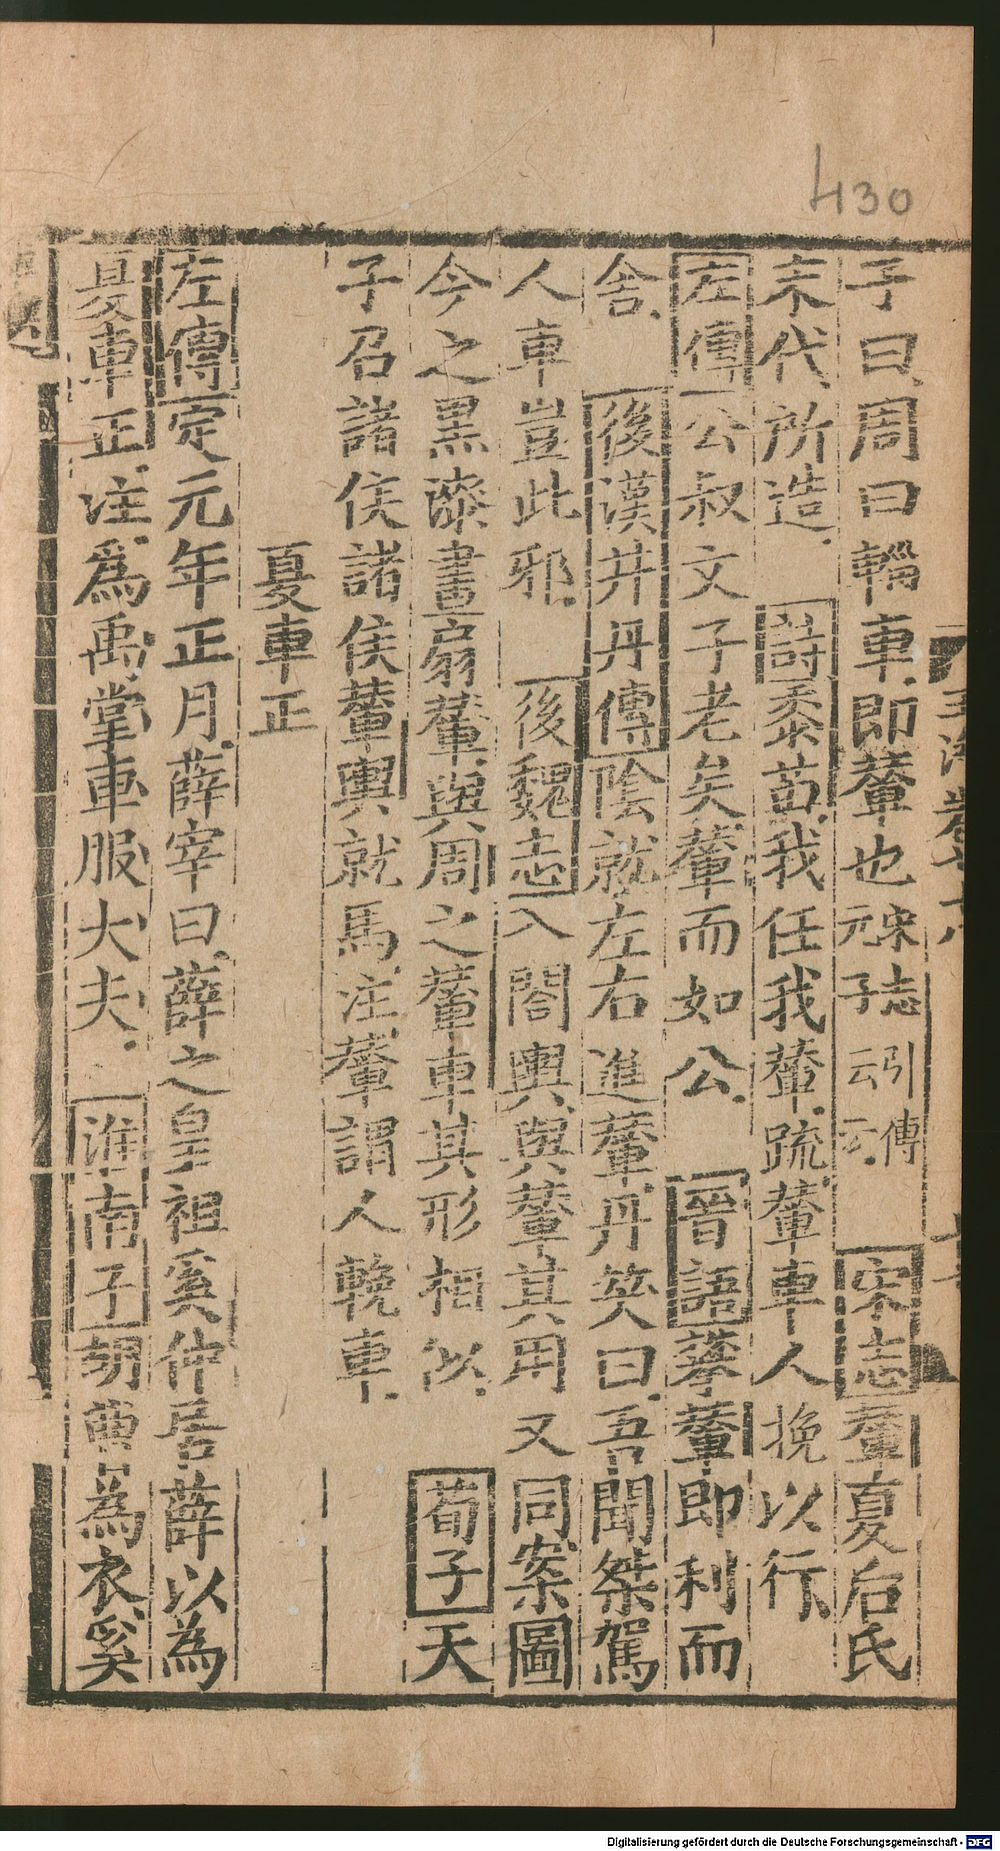 430
子曰周曰輜車即輦也宋志引傳元子云云宋志輦夏后氏
末代所造詩黍苗我任我輦疏輦車人挽以行
左傳公叔文子老矣輦而如公晉語輦即利而
舍後漢井丹傳陰就左右進輦丹笑曰吾聞桀駕
人車豈此邪後魏志入閤輿與輦其用又同案圖
今之黑漆畫扇輦與周之輦車其形相似荀子天
子召諸侯諸侯輦輿就馬注輦謂人輓車
夏車正
左傳定元年正月薛宰曰薛之皇祖奚仲居薛以為
夏車正注為禹掌車服大夫淮南子胡曹為衣奚
Digitalisierung gefördert durch die Deutsche Forschungsgemeinschaft - DFG